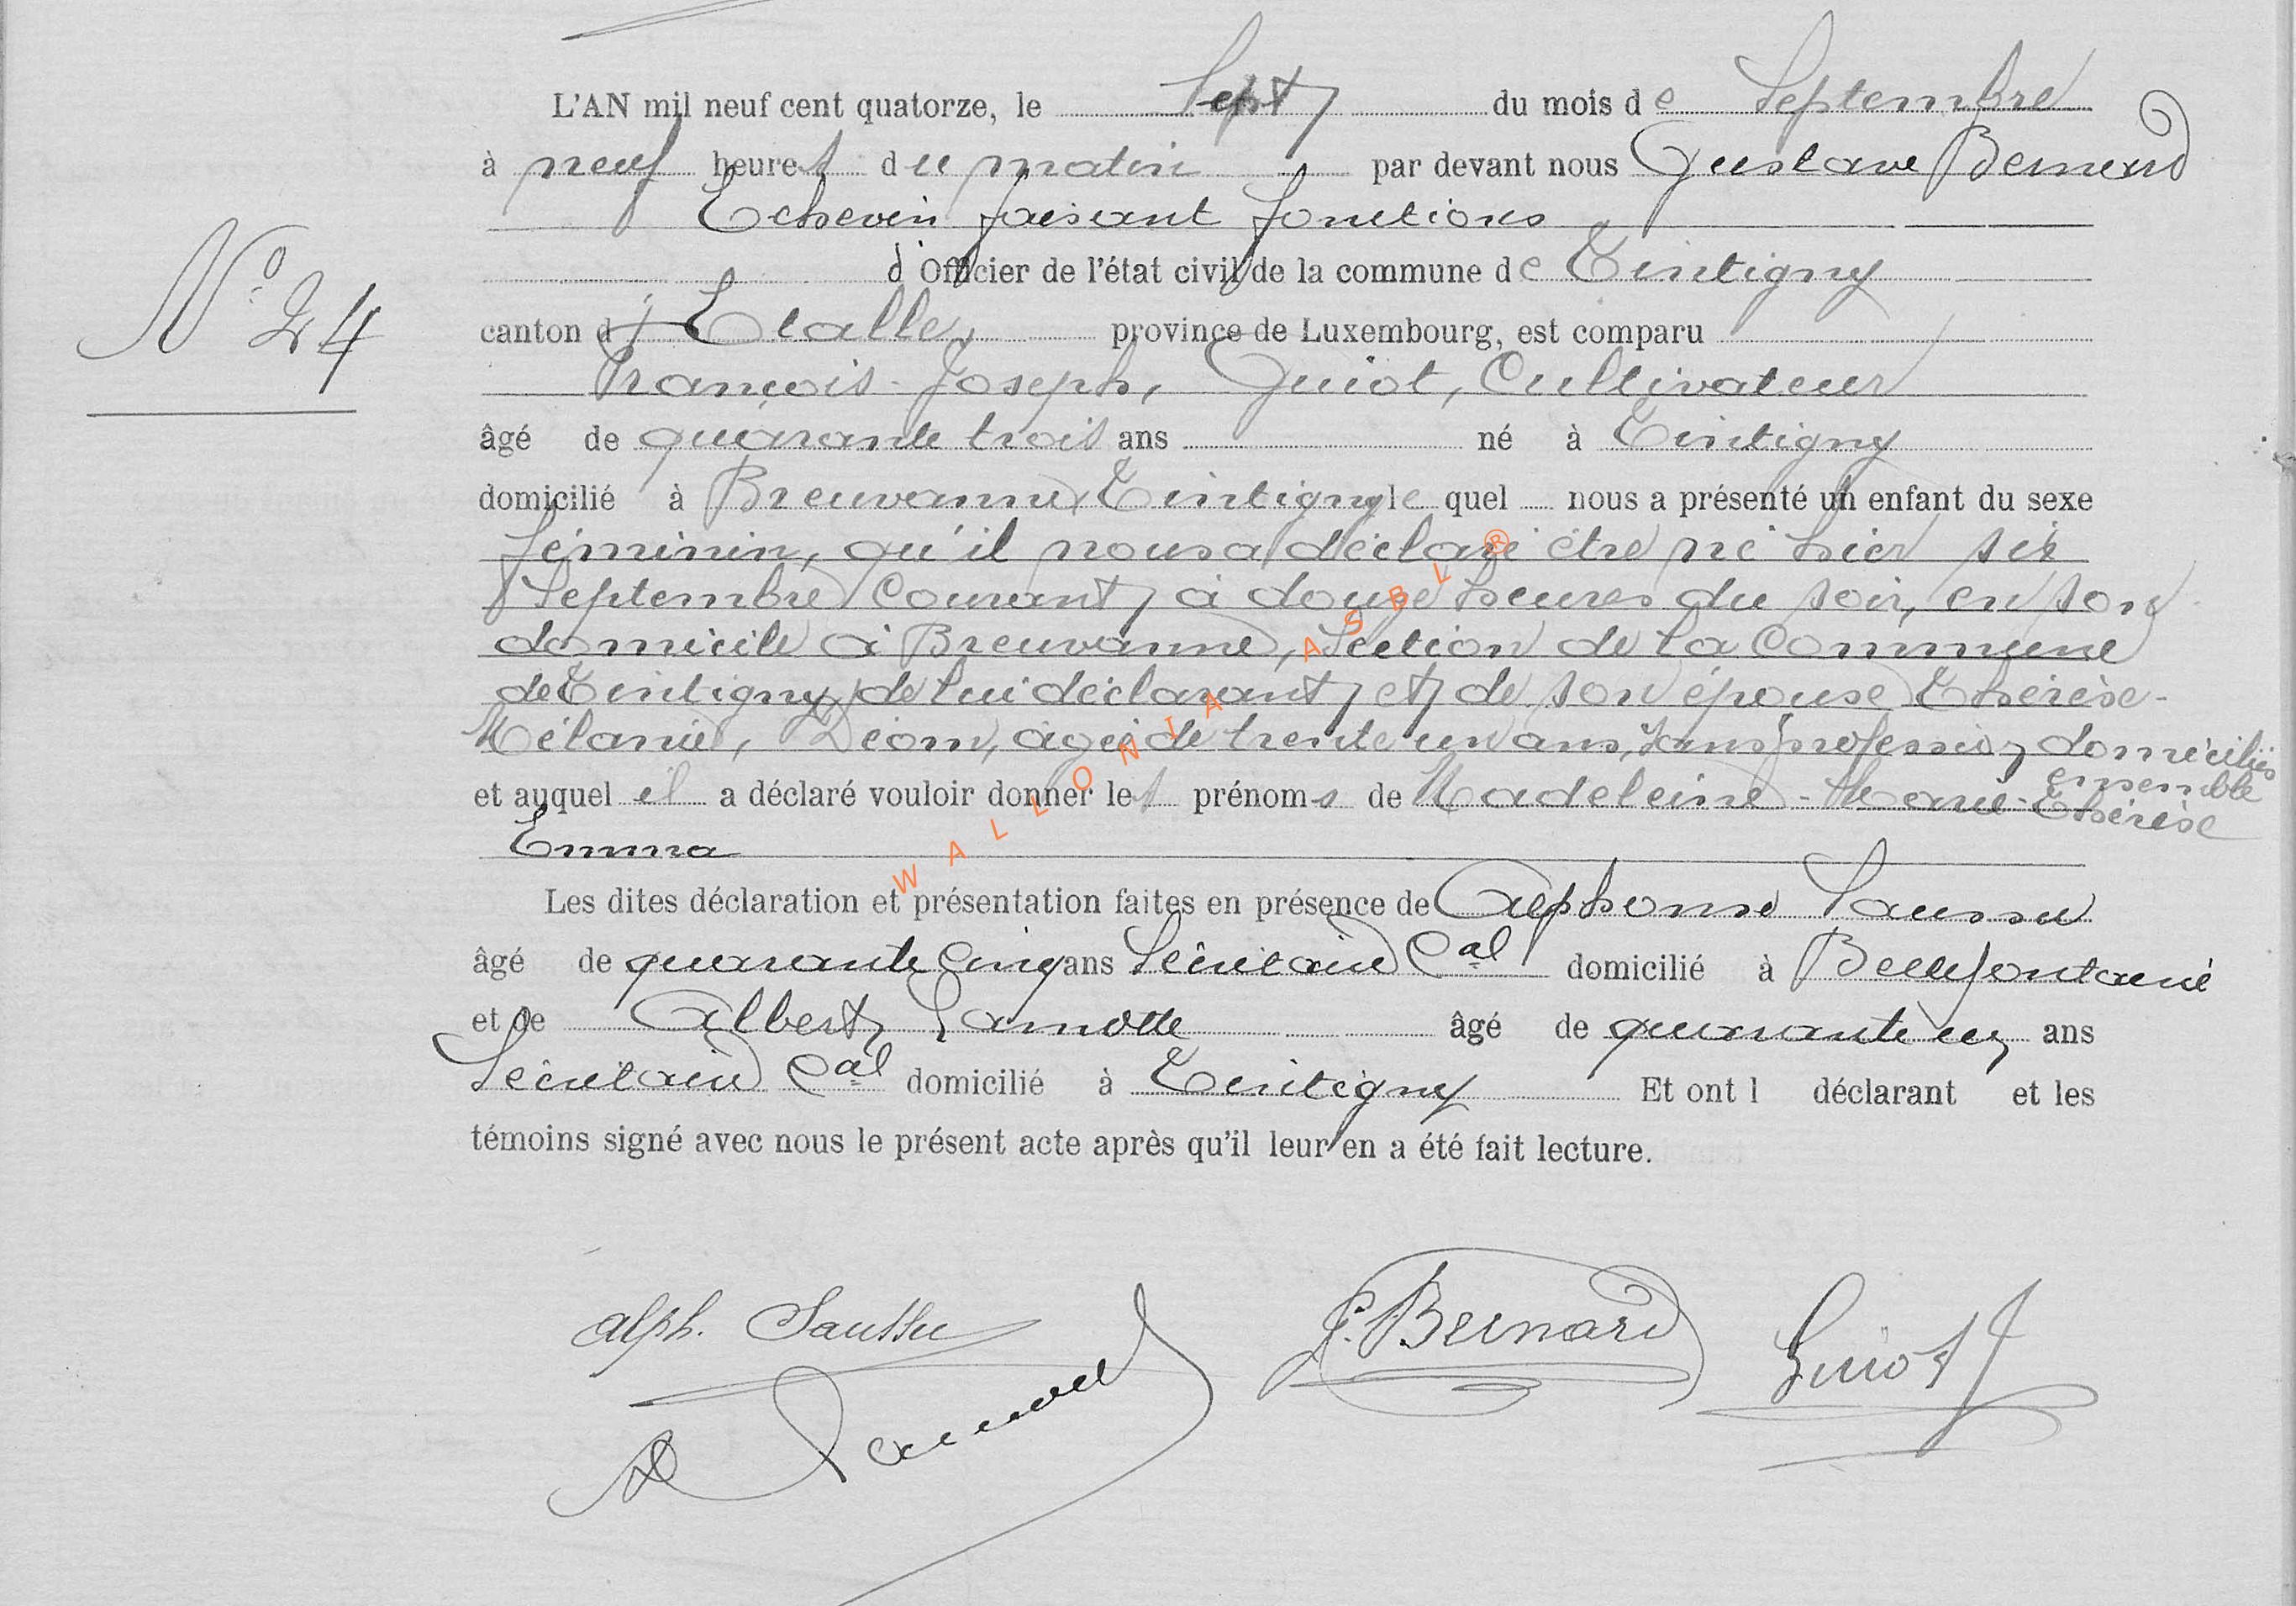 L'AN mil neuf cent quatorze, le Sept du mois de Septembre
à neuf heures du matin par devant nous Gustave Bernard
Echevin faisant fonctions
d'Officier de l'état civil de la commune de Tintigny
N° 24
canton d'Etalle, province de Luxembourg, est comparu
François-Joseph, Guiot, Cultivateur
âgé de quarante trois ans né à Tintigny
domicilié à Breuvanne, Tintigny lequel nous a présenté un enfant du sexe
féminin, qu'il nous a déclaré être né hier six
Septembre courant, à douze heures du soir, en son
domicile à Breuvanne, Section de la Commune
de Tintigny, de lui déclarant, et de son épouse Thérèse-
Mélanie, Déom, âgée de trente un ans, sans profession, domiciliés
ensemble
et auquel il a déclaré vouloir donner les prénoms de Madeleine-Marie-Thérèse
Emma
Les dites déclaration et présentation faites en présence de Alphonse Saussu
âgé de quarante cinq ans Secrétaire Cal domicilié à Bellefontaine
et de Albert Lamotte âgé de quarante un ans
Secrétaire Cal domicilié à Tintigny Et ont l déclarant et les
témoins signé avec nous le présent acte après qu'il leur en a été fait lecture.
Alph. Saussu
G. Bernard
Guiot
A Lamotte
WALLONIA ASBL ®